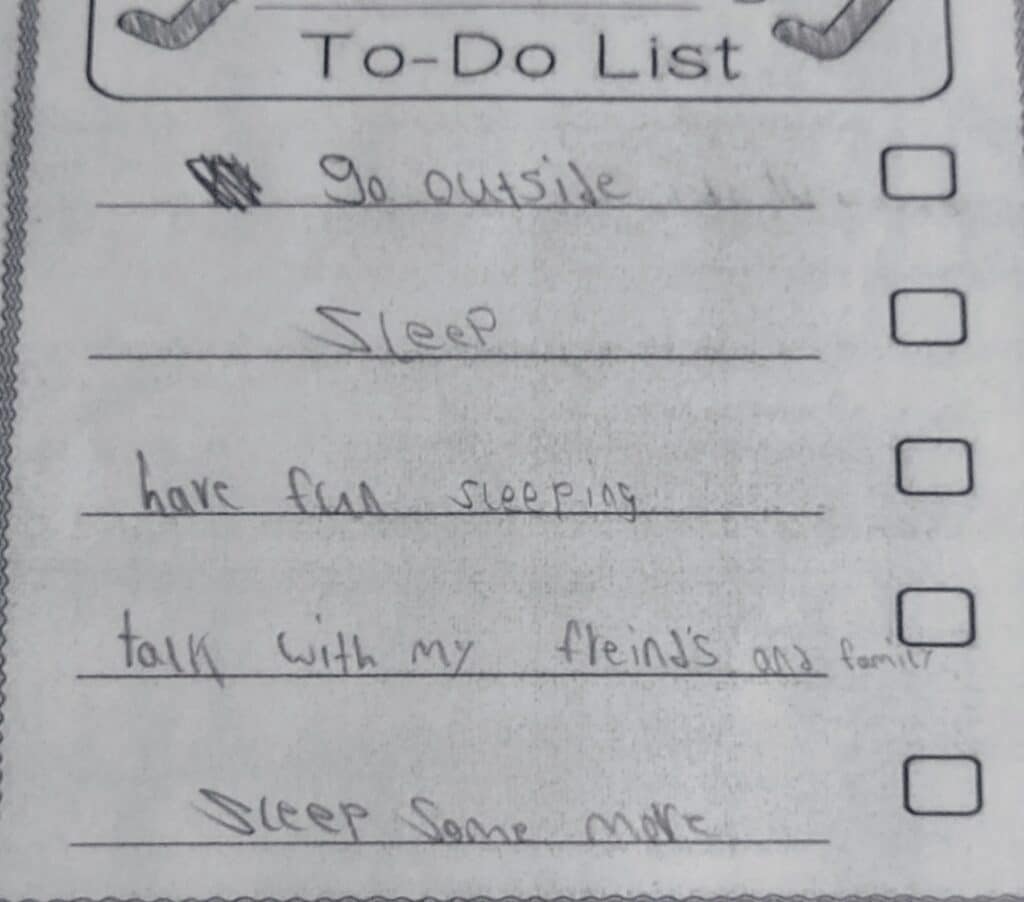 To-Do List
go outside
Sleep
have fun sleeping
talk with my freind's and family
Sleep Some more